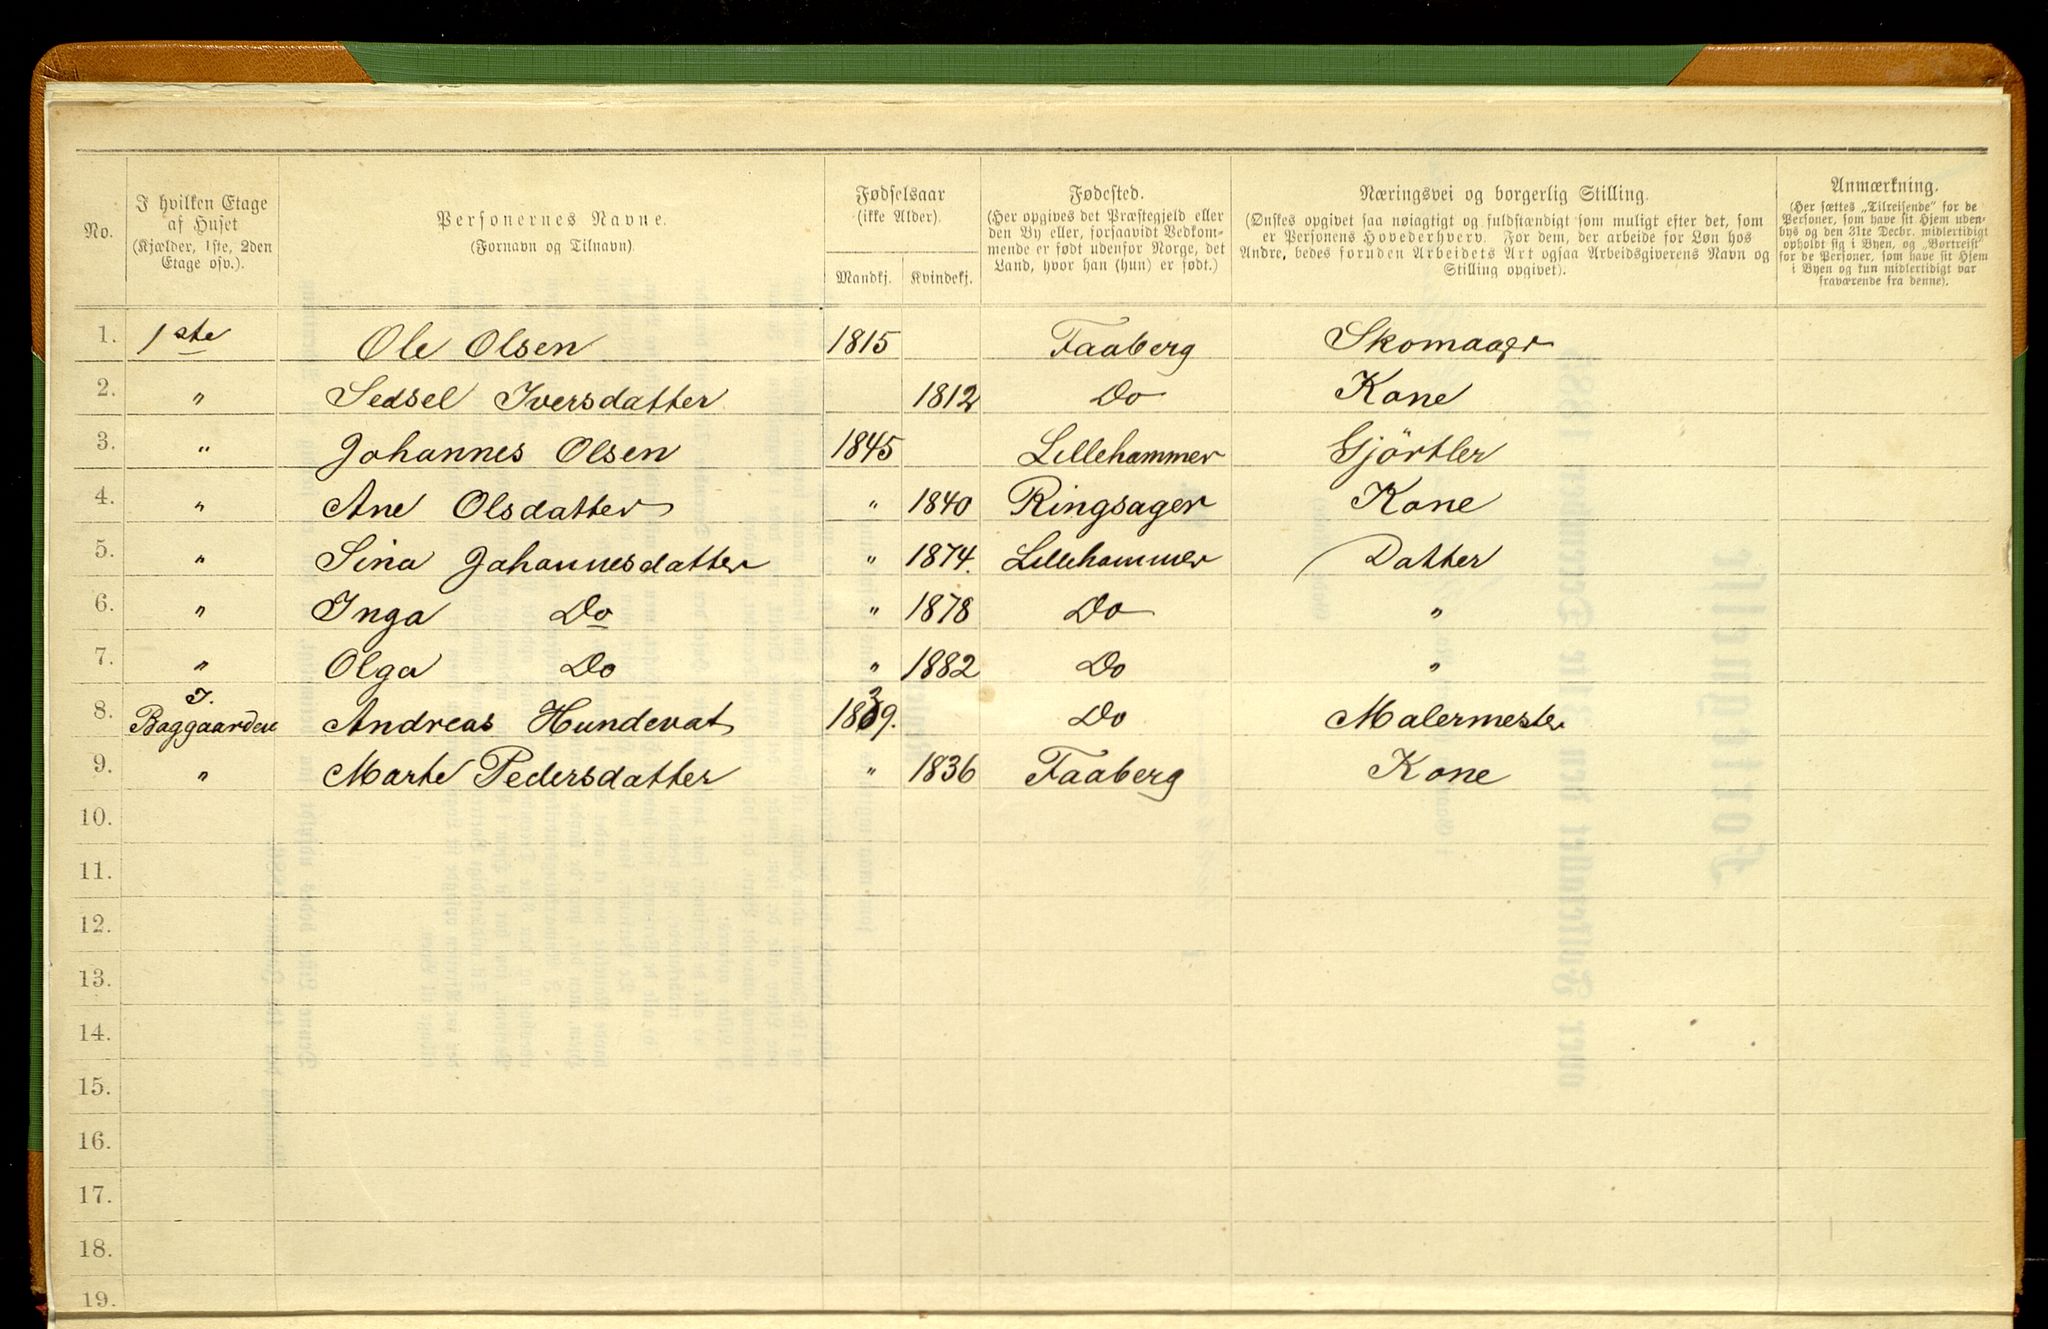 No.
I hvilken Etage
af Huset
(Kjælder, 1ste, 2den
Etage osv.).
Personernes Navne.
(Fornavn og Tilnavn).
Fødselsaar
(ikke Alder).
Mandkj. Kvindekj.
Fødested.
(Her opgives det Præstegjeld eller
den By eller, forsaavidt Vedkom-
mende er født udenfor Norge, det
Land, hvor han (hun) er født.)
Næringsvei og borgerlig Stilling.
(Ønskes opgivet saa nøiagtigt og fuldstændigt som muligt efter det, som
er Personens Hovederhverv. For dem, der arbeide for Løn hos
Andre, bedes foruden Arbeidets Art ogsaa Arbeidsgiverens Navn og
Stilling opgivet).
Anmærkning.
(Her sættes „Tilreisende" for de
Personer, som have sit Hjem uden-
bys og den 31te Decbr. midlertidigt
opholdt sig i Byen, og „Bortreist"
for de Personer, som have sit Hjem
i Byen og kun midlertidigt var
fraværende fra denne).
1. 1ste Ole Olsen 1815 Faaberg Skomager
2. " Sedsel Iversdatter 1812 Do Kone
3. " Johannes Olsen 1845 Lillehammer Gjörtler
4. " Ane Olsdatter " 1840 Ringsager Kone
5. " Sina Johannesdatter " 1874. Lillehammer Datter
6. " Inga Do " 1878 Do "
7. " Olga Do " 1882 Do "
8. I. Baggaarden Andreas Hundevat 1839. Do Malermester
9. " Marte Pedersdatter " 1836 Faaberg Kone
10.
11.
12.
13.
14.
15.
16.
17.
18.
19.